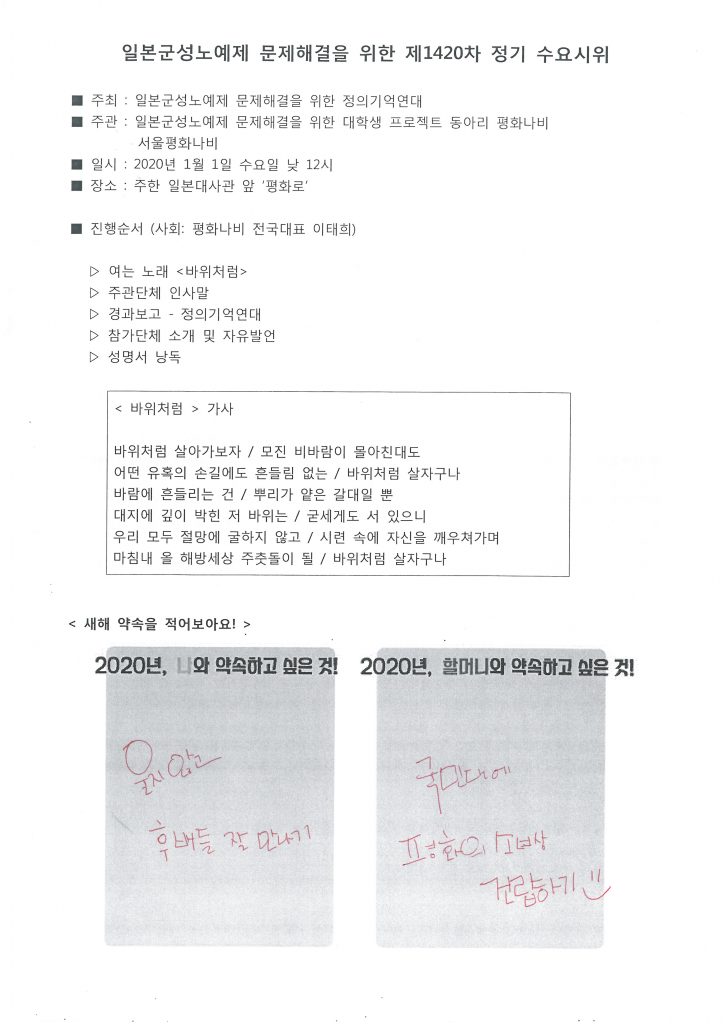 일본군성노예제 문제해결을 위한 제1420차 정기 수요시위
■ 주최 : 일본군성노예제 문제해결을 위한 정의기억연대
■ 주관 : 일본군성노예제 문제해결을 위한 대학생 프로젝트 동아리 평화나비
서울평화나비
■ 일시 : 2020년 1월 1일 수요일 낮 12시
■ 장소 : 주한 일본대사관 앞 '평화로'
■ 진행순서 (사회: 평화나비 전국대표 이태희)
▷ 여는 노래 <바위처럼>
▷ 주관단체 인사말
▷ 경과보고 - 정의기억연대
▷ 참가단체 소개 및 자유발언
▷ 성명서 낭독
< 바위처럼 > 가사
바위처럼 살아가보자 / 모진 비바람이 몰아친대도
어떤 유혹의 손길에도 흔들림 없는 / 바위처럼 살자구나
바람에 흔들리는 건 / 뿌리가 얕은 갈대일 뿐
대지에 깊이 박힌 저 바위는 / 굳세게도 서 있으니
우리 모두 절망에 굴하지 않고 / 시련 속에 자신을 깨우쳐가며
마침내 올 해방세상 주춧돌이 될 / 바위처럼 살자구나
< 새해 약속을 적어보아요! >
2020년, 나와 약속하고 싶은 것!
울지 않고
후배들 잘 만나기
2020년, 할머니와 약속하고 싶은 것!
국민대에
평화의 소녀상
건립하기